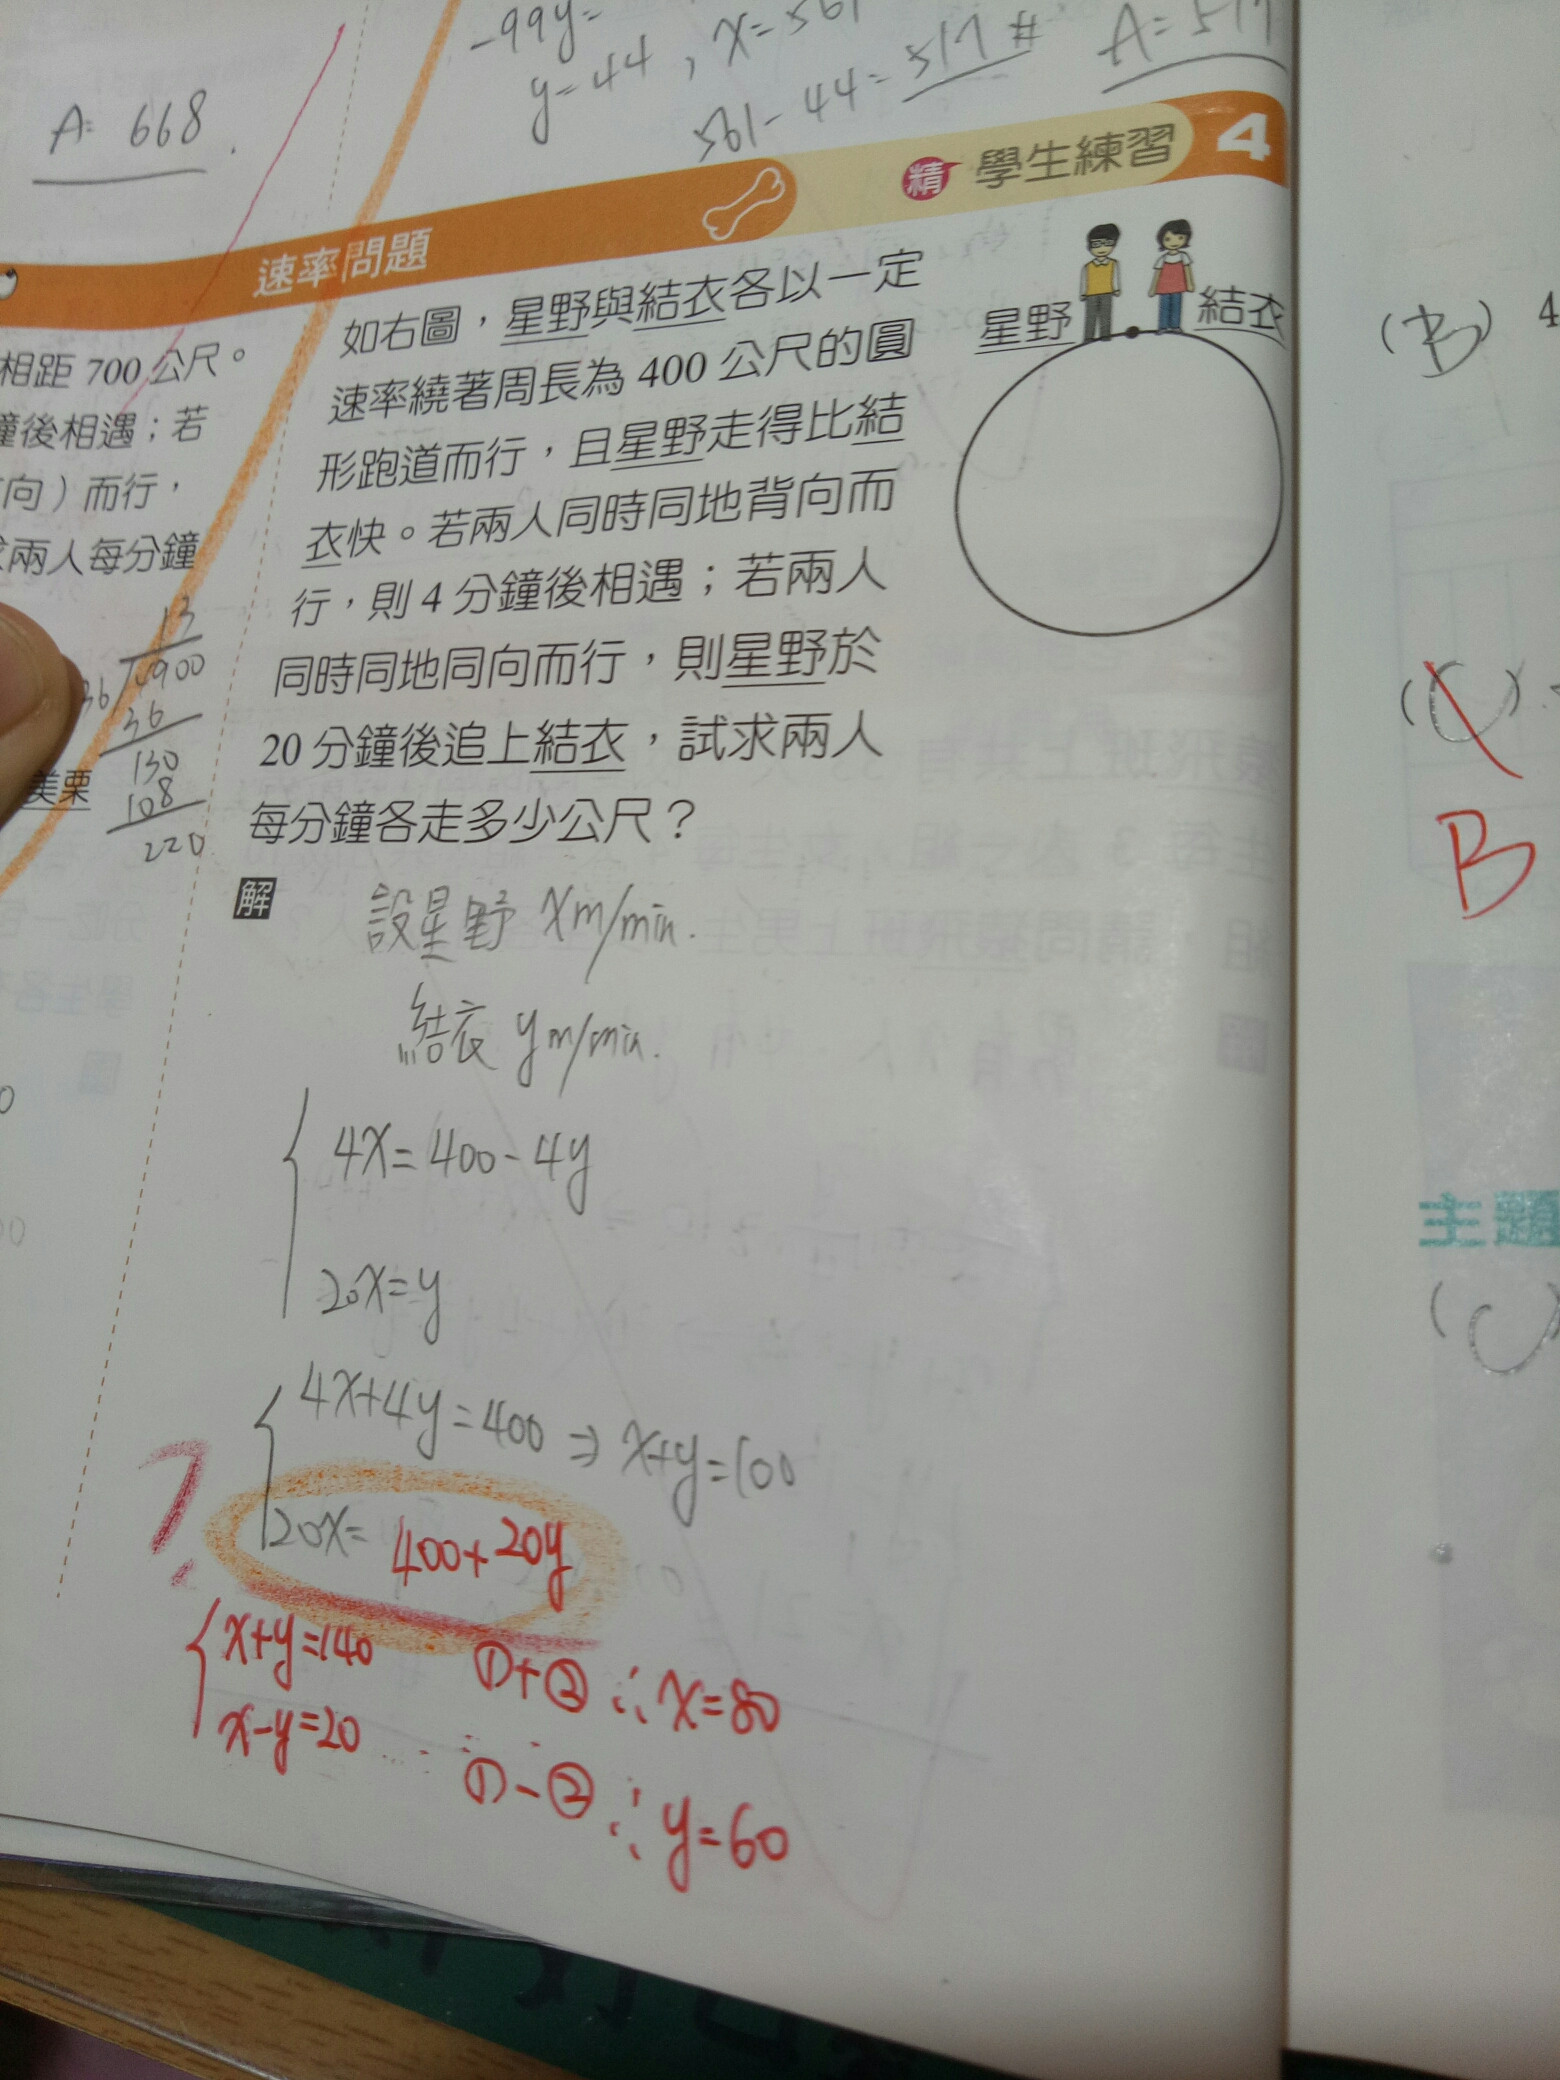 -99y=
y=44, x=561
561-44=517 #
A=517
A= 668.
速率問題
精 學生練習 4
相距 700 公尺。
鐘後相遇；若
向）而行，
兩人每分鐘
13
36 4900
36
130
108
220
美栗
如右圖，星野與結衣各以一定
速率繞著周長為 400 公尺的圓
形跑道而行，且星野走得比結
衣快。若兩人同時同地背向而
行，則 4 分鐘後相遇；若兩人
同時同地同向而行，則星野於
20 分鐘後追上結衣，試求兩人
每分鐘各走多少公尺？
星野
結衣
解
設星野 xm/min.
結衣 ym/min.
4x=400-4y
20x=y
4x+4y=400⇒x+y=100
20x=400+20y
?
x+y=140 ①+② ∴x=80
x-y=20 ①-② ∴y=60
(B) 4
B
主題